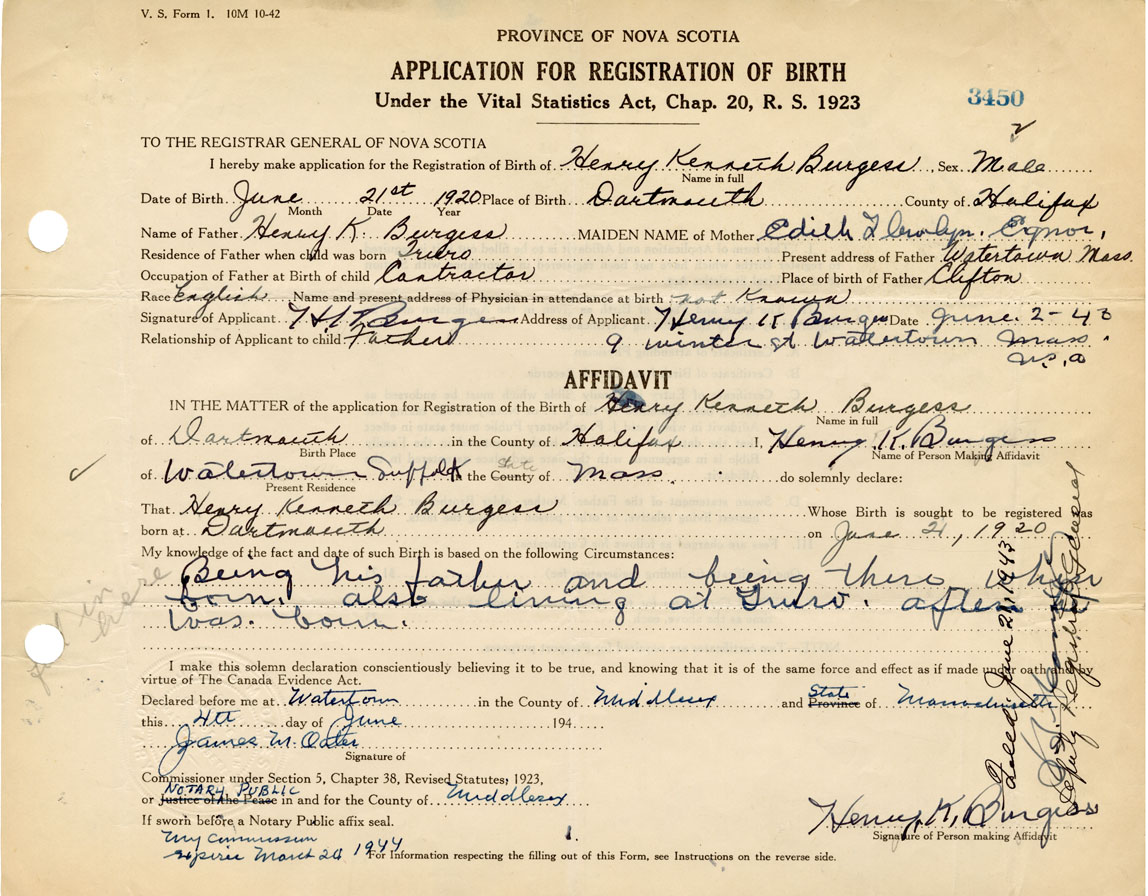 V. S. Form 1. 10M 10-42
PROVINCE OF NOVA SCOTIA
APPLICATION FOR REGISTRATION OF BIRTH
Under the Vital Statistics Act, Chap. 20, R. S. 1923
3450
TO THE REGISTRAR GENERAL OF NOVA SCOTIA
I hereby make application for the Registration of Birth of Henry Kenneth Burgess, Sex Male
Name in full
Date of Birth June 21st 1920 Place of Birth Dartmouth County of Halifax
Month Date Year
Name of Father Henry K. Burgess MAIDEN NAME of Mother Edith
Residence of Father when child was born Truro Present address of Father Watertown Mass.
Occupation of Father at Birth of child Contractor Place of birth of Father Clifton
Race English Name and present address of Physician in attendance at birth not Known
Signature of Applicant H K Burgess Address of Applicant Henry K Burgess Date June. 2-43
Relationship of Applicant to child Father 9 winter st Watertown Mass.
U.S.a
AFFIDAVIT
IN THE MATTER of the application for Registration of the Birth of Henry Kenneth Burgess
Name in full
of Dartmouth in the County of Halifax I, Henry K. Burgess
Birth Place Name of Person Making Affidavit
of Watertown Suffolk in the County State of Mass. do solemnly declare:
Present Residence
That Henry Kenneth Burgess Whose Birth is sought to be registered was
born at Dartmouth on June 21, 1920
My knowledge of the fact and date of such Birth is based on the following Circumstances:
Being his father and being there when
born. also living at Truro. after
was. born.
I make this solemn declaration conscientiously believing it to be true, and knowing that it is of the same force and effect as if made under oath and by
virtue of The Canada Evidence Act.
Declared before me at Watertown in the County of Middlesex and Province State of Massachusetts
this 4th day of June 194
James M. Oates
Signature of
Commissioner under Section 5, Chapter 38, Revised Statutes, 1923,
NOTARY PUBLIC
or Justice of the Peace in and for the County of Middlesex
If sworn before a Notary Public affix seal.
My Commission
expires March 24 1944
Henry K. Burgess
Signature of Person making Affidavit
For Information respecting the filling out of this Form, see Instructions on the reverse side.
Filed June 21, 1943
Deputy Registrar General